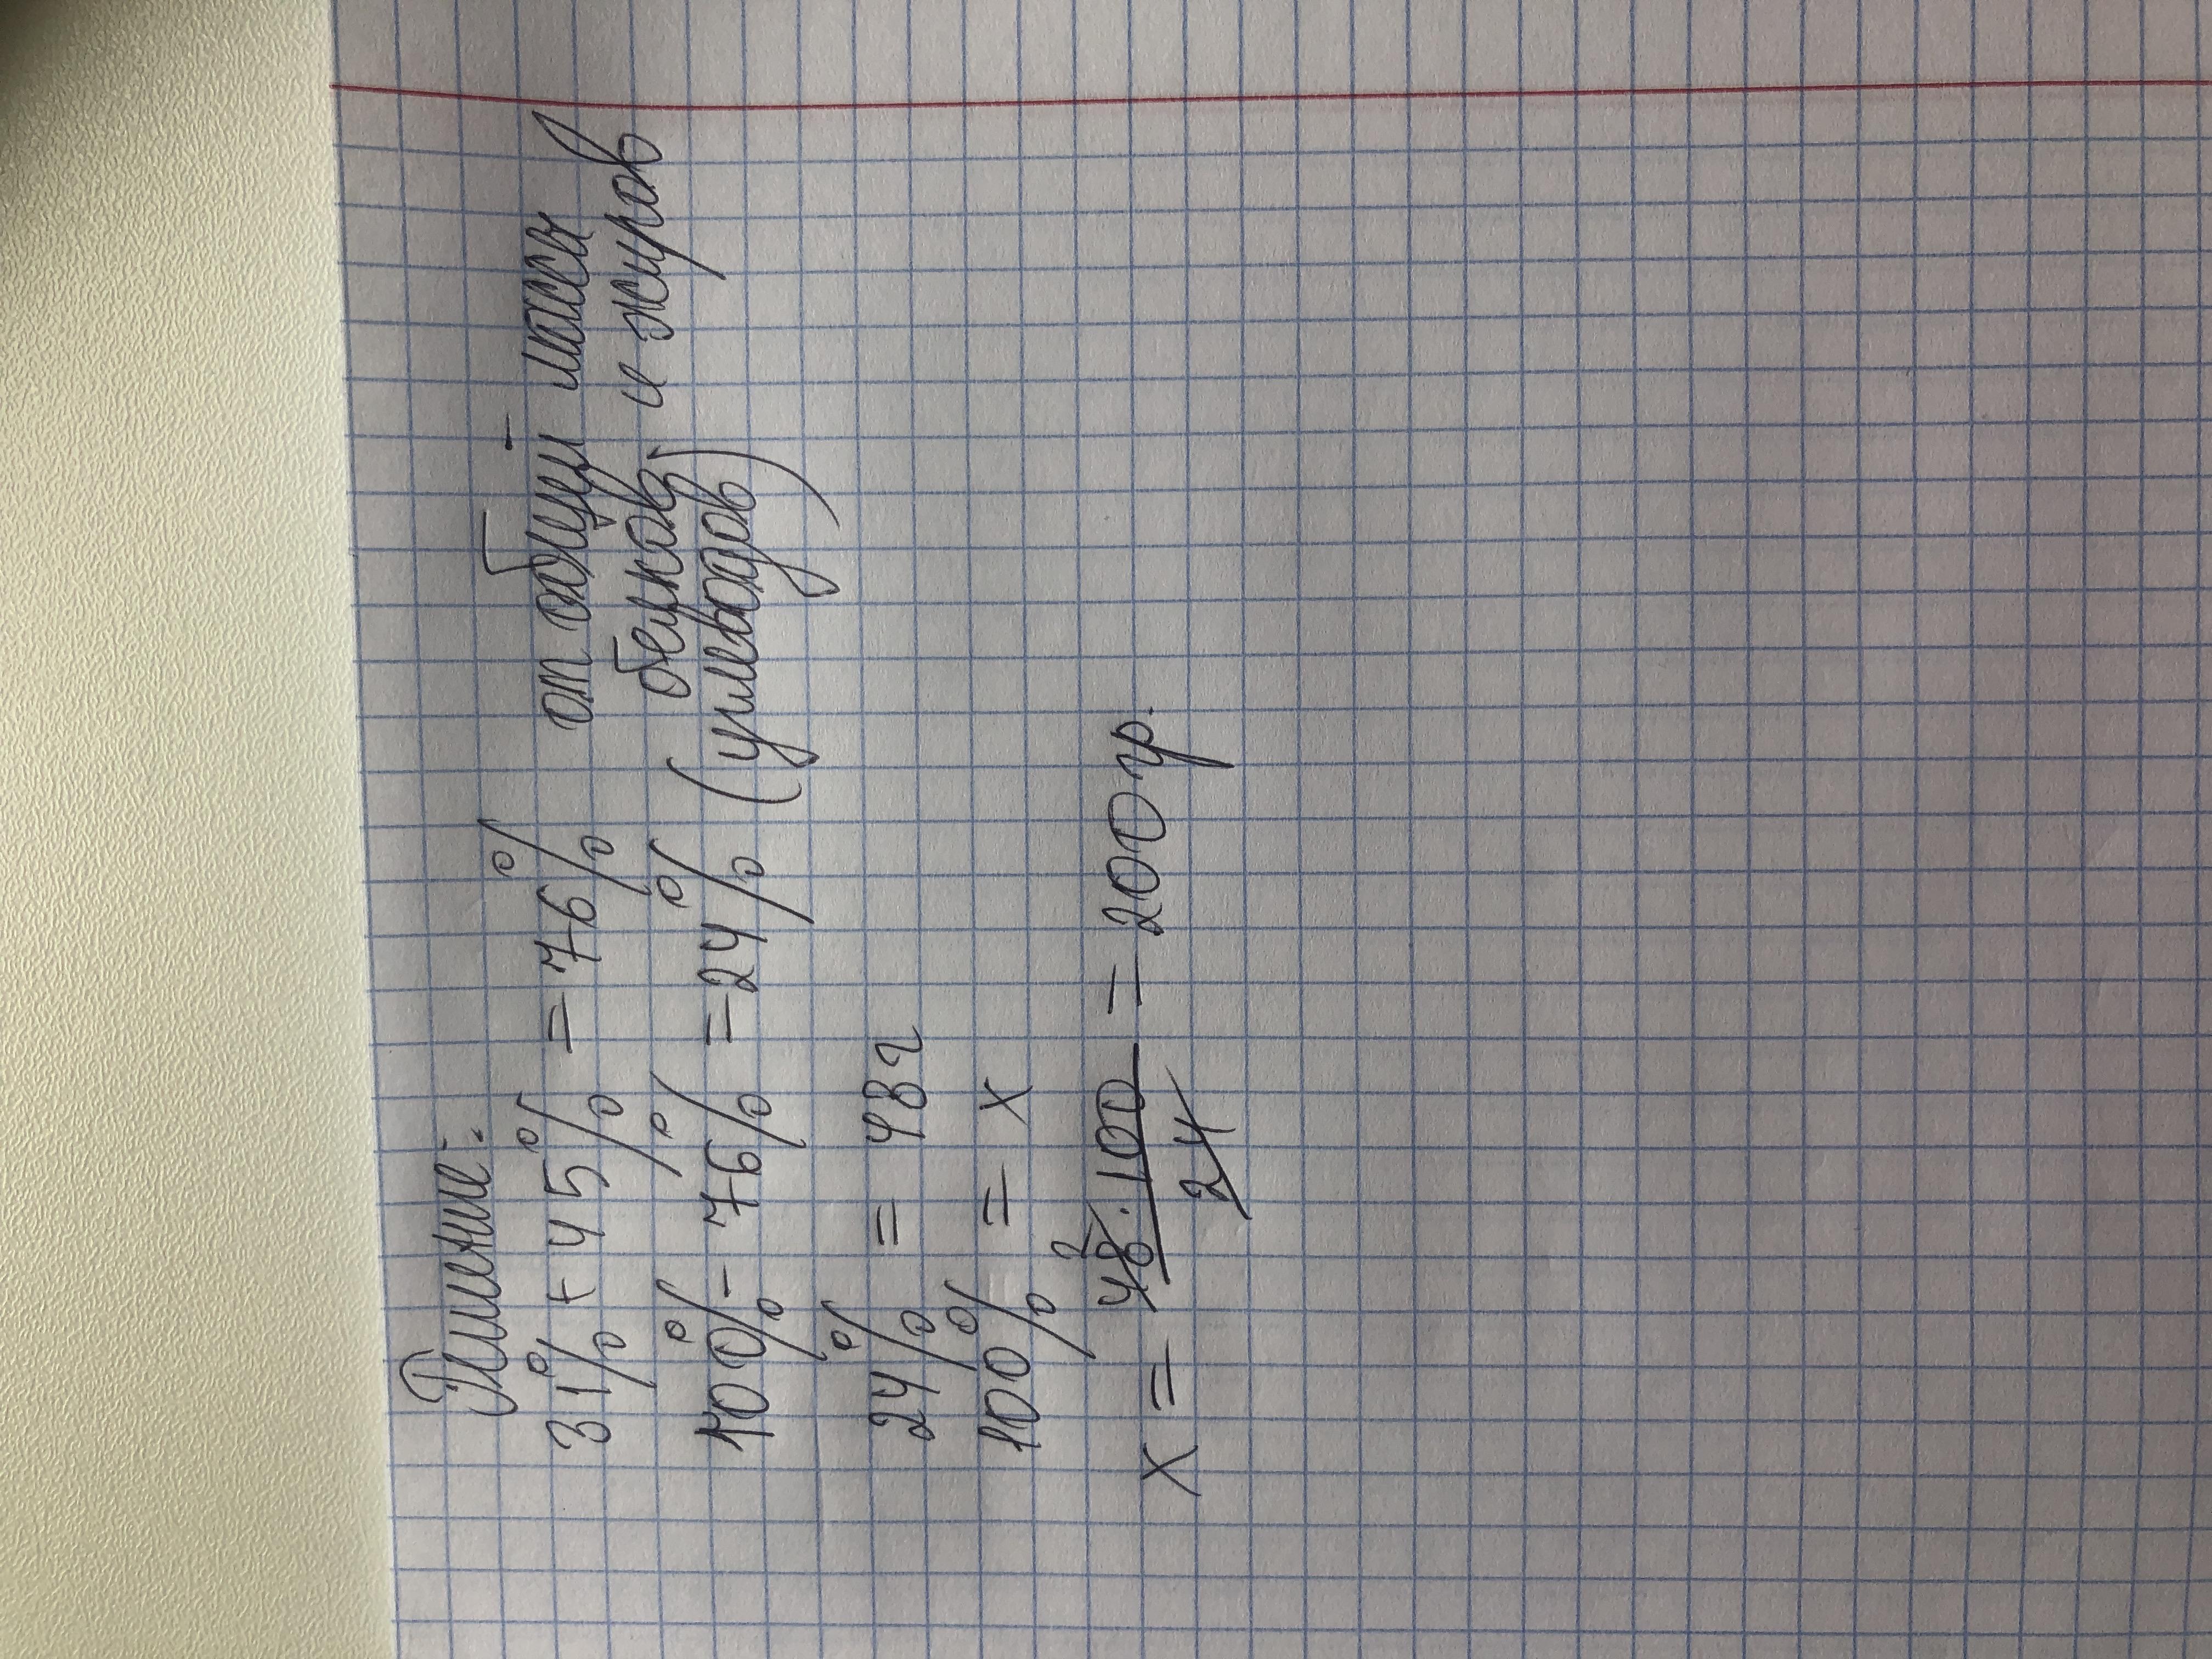 Решение:
31% + 45% = 76% от общей массы
белков и жиров
100% - 76% = 24% (углеводов)
24% = 48г
100% = x
x = 48 2 · 100 / 24 = 200 гр.